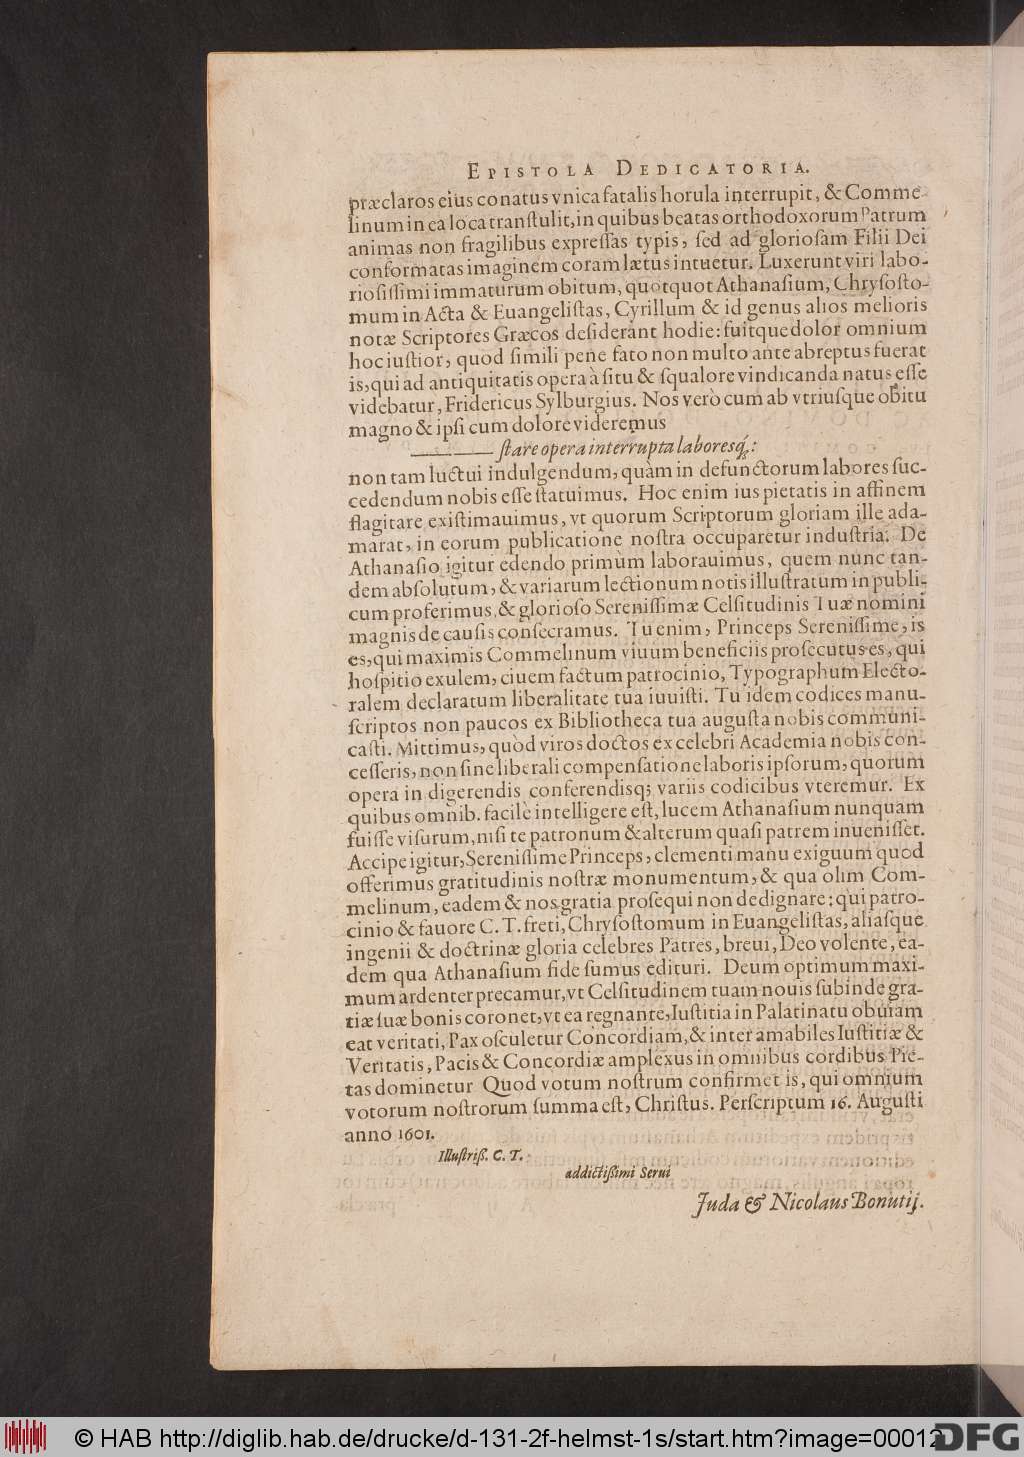 EPISTOLA DEDICATORIA.
præclaros eius conatus vnica fatalis horula interrupit, & Comme-
linum in ea loca tranſtulit, in quibus beatas orthodoxorum Patrum
animas non fragilibus expreſſas typis, ſed ad glorioſam Filii Dei
conformatas imaginem coram lætus intuetur. Luxerunt viri labo-
rioſiſſimi immaturum obitum, quotquot Athanaſium, Chryſoſto-
mum in Acta & Euangeliſtas, Cyrillum & id genus alios melioris
notæ Scriptores Græcos deſiderant hodie: fuitque dolor omnium
hoc iuſtior, quod ſimili pene fato non multo ante abreptus fuerat
is, qui ad antiquitatis opera à ſitu & ſqualore vindicanda natus eſſe
videbatur, Fridericus Sylburgius. Nos verò cum ab vtriuſque obitu
magno & ipſi cum dolore videremus
ſtare opera interrupta laboresq́;:
non tam luctui indulgendum, quàm in defunctorum labores ſuc-
cedendum nobis eſſe ſtatuimus. Hoc enim ius pietatis in affinem
flagitare exiſtimauimus, vt quorum Scriptorum gloriam ille ada-
marat, in eorum publicatione noſtra occuparetur induſtria. De
Athanaſio igitur edendo primùm laborauimus, quem nunc tan-
dem abſolutum, & variarum lectionum notis illuſtratum in publi-
cum proferimus, & glorioſo Sereniſſimæ Celſitudinis Tuæ nomini
magnis de cauſis conſecramus. Tu enim, Princeps Sereniſſime, is
es, qui maximis Commelinum viuum beneficiis proſecutus es, qui
hoſpitio exulem, ciuem factum patrocinio, Typographum Electo-
ralem declaratum liberalitate tua iuuiſti. Tu idem codices manu-
ſcriptos non paucos ex Bibliotheca tua auguſta nobis communi-
caſti. Mittimus, quòd viros doctos ex celebri Academia nobis con-
ceſſeris, non ſine liberali compenſatione laboris ipſorum, quorum
opera in digerendis conferendisq; variis codicibus vteremur. Ex
quibus omnib. facilè intelligere eſt, lucem Athanaſium nunquam
fuiſſe viſurum, niſi te patronum & alterum quaſi patrem inueniſſet.
Accipe igitur, Sereniſſime Princeps, clementi manu exiguum quod
offerimus gratitudinis noſtræ monumentum, & qua olim Com-
melinum, eadem & nos gratia proſequi non dedignare: qui patro-
cinio & fauore C. T. freti, Chryſoſtomum in Euangeliſtas, aliaſque
ingenii & doctrinæ gloria celebres Patres, breui, Deo volente, ea-
dem qua Athanaſium fide ſumus edituri. Deum optimum maxi-
mum ardenter precamur, vt Celſitudinem tuam nouis ſubinde gra-
tiæ ſuæ bonis coronet, vt ea regnante, Iuſtitia in Palatinatu obuiam
eat veritati, Pax oſculetur Concordiam, & inter amabiles Iuſtitiæ &
Veritatis, Pacis & Concordiæ amplexus in omnibus cordibus Pie-
tas dominetur Quod votum noſtrum confirmet is, qui omnium
votorum noſtrorum ſumma eſt, Chriſtus. Perſcriptum 16. Auguſti
anno 1601.
Illuſtriß. C. T.
addictißimi Serui
Juda & Nicolaus Bonutij.
© HAB http://diglib.hab.de/drucke/d-131-2f-helmst-1s/start.htm?image=00012
DFG